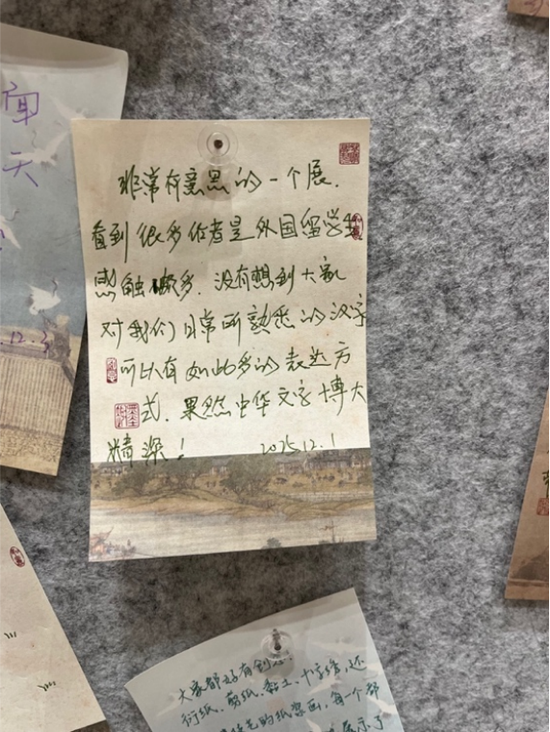 非常有意思的一个展.
看到很多作者是外国留学生
感触颇多. 没有想到大家
对我们日常所熟悉的汉字
可以有如此多的表达方
式. 果然中华文字博大
精深!    2025.12.1
天
大家都好有创
衍纸、剪纸、黏土、十字绣,还
的纸浆画,每一个都